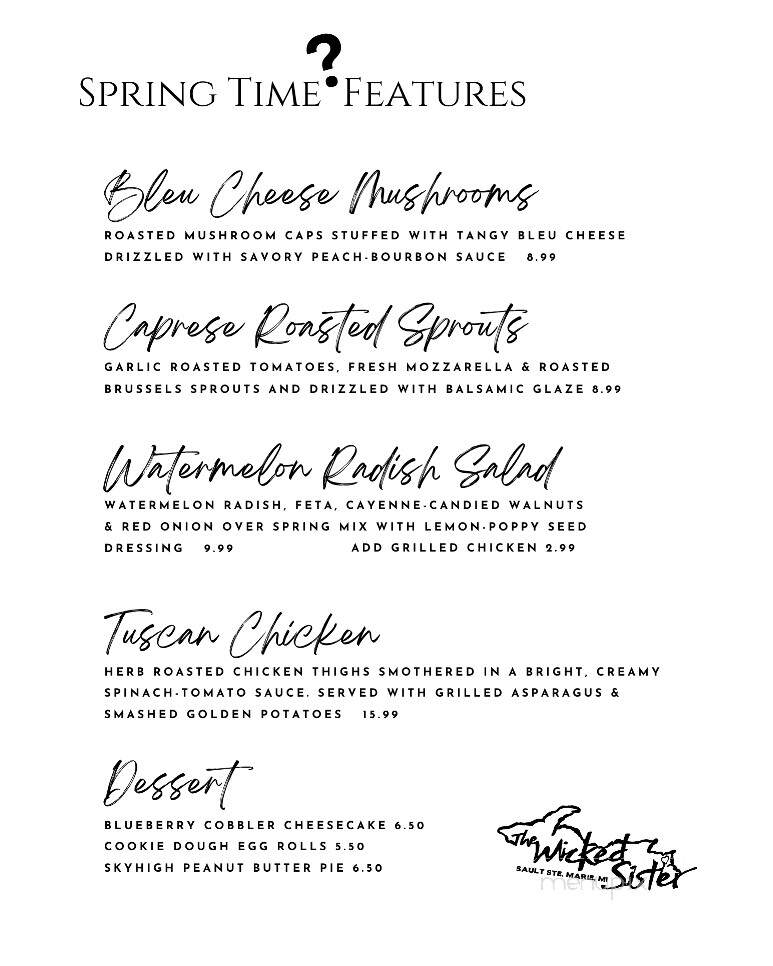 SPRING TIME?FEATURES
Bleu Cheese Mushrooms
ROASTED MUSHROOM CAPS STUFFED WITH TANGY BLEU CHEESE
DRIZZLED WITH SAVORY PEACH-BOURBON SAUCE 8.99
Caprese Roasted Sprouts
GARLIC ROASTED TOMATOES, FRESH MOZZARELLA & ROASTED
BRUSSELS SPROUTS AND DRIZZLED WITH BALSAMIC GLAZE 8.99
Watermelon Radish Salad
WATERMELON RADISH, FETA, CAYENNE-CANDIED WALNUTS
& RED ONION OVER SPRING MIX WITH LEMON-POPPY SEED
DRESSING 9.99 ADD GRILLED CHICKEN 2.99
Tuscan Chicken
HERB ROASTED CHICKEN THIGHS SMOTHERED IN A BRIGHT, CREAMY
SPINACH-TOMATO SAUCE. SERVED WITH GRILLED ASPARAGUS &
SMASHED GOLDEN POTATOES 15.99
Dessert
BLUEBERRY COBBLER CHEESECAKE 6.50
COOKIE DOUGH EGG ROLLS 5.50
SKYHIGH PEANUT BUTTER PIE 6.50
The Wicked
Sister
SAULT STE. MARIE, MI